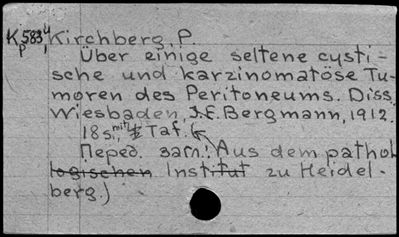 K 583 Kirchberg, P.
p
Über einige seltene cysti-
sche und karzinomatöse Tu-
moren des Peritoneums. Diss.
Wiesbaden, J.F. Bergmann, 1912.
18 S., mit Taf.
Перед. загл.: Aus dem pathol
logischen Institut zu Heidel-
berg.)